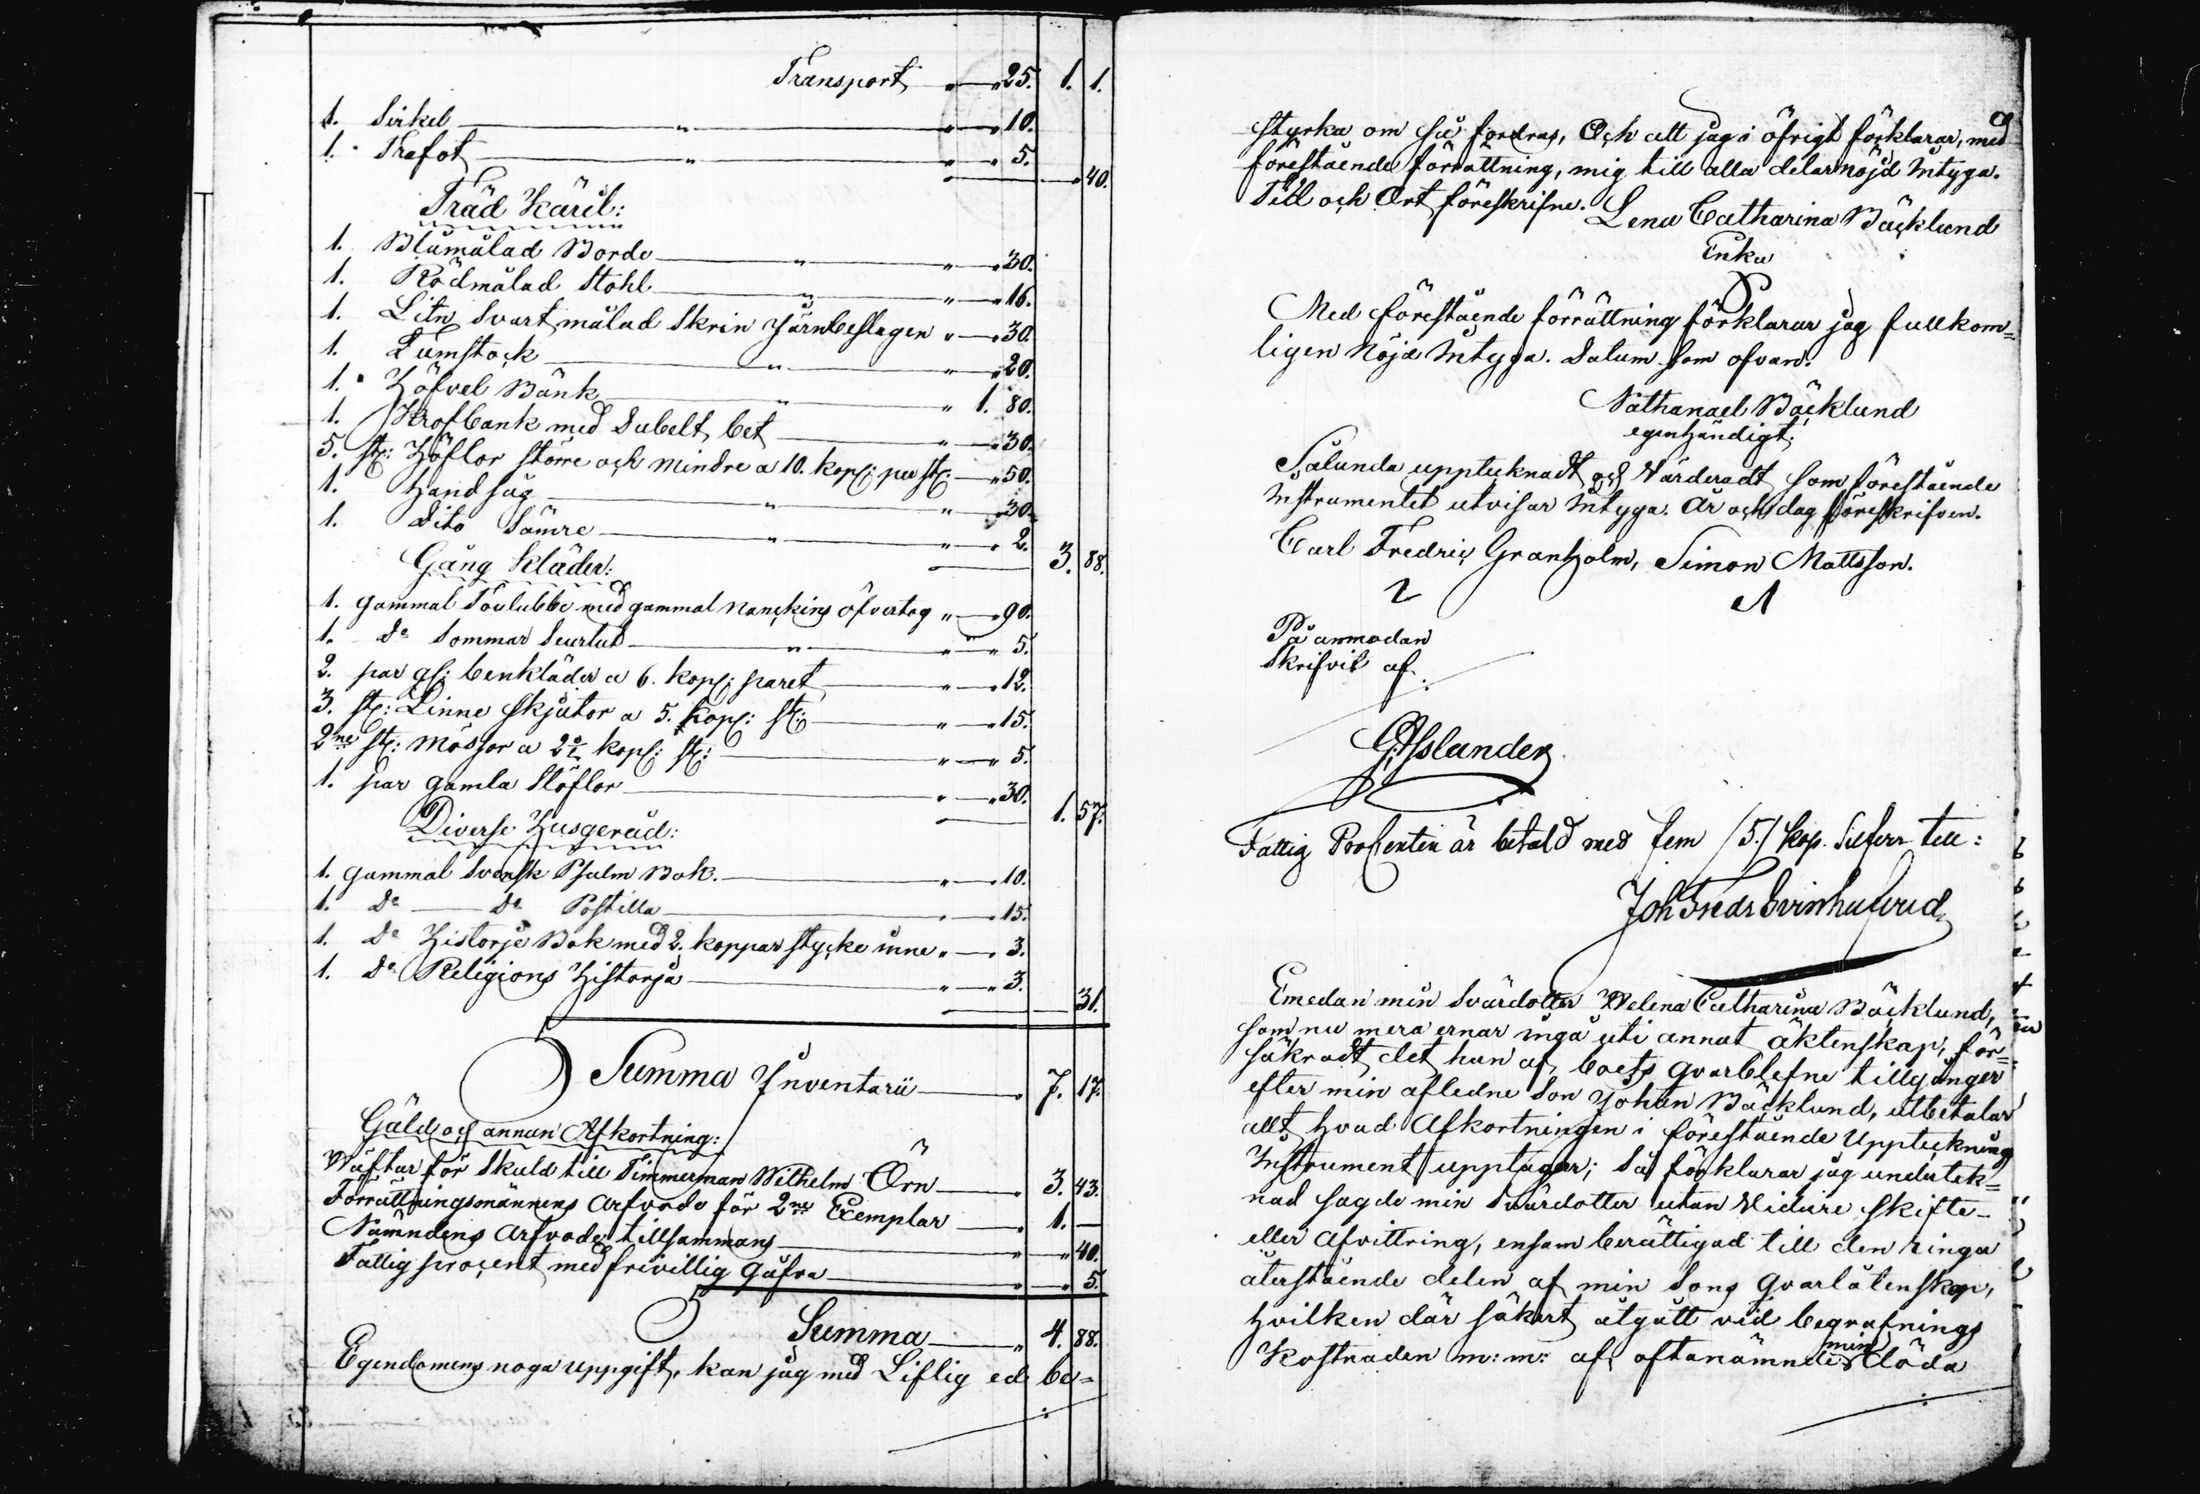 Transport " — " 25. 1. 1.
1. Sirkel — " — " — " 10.
1. Trafot — " — " — " 5. — " 40.
Träd Käril:
1. Blåmålad Borde — " — " — " 30.
1. Rödmålad Stohl — " — " — " 16.
1. Litn Svart målad Skrin Järnbeslagen " — " 30.
1. Tumstock — " — " — " 20.
1. Höfvel Bänk — " — " 1. 80.
1. Skrofbänk med Dubelt bet — " — " 30.
5. st: Höflor större och mindre a 10. kop: per st: — " 50.
1. Hand såg — " — " — " 30.
1. Dito Sämre — " — " — " 2. — 3. 88.
Gång kläder:
1. gammal Toulubbe med gammal nanckins öfvertog " — " 90.
1. Do Sommar Seurtut — " — " — " 5.
2. par gl: benkläder a 6. kop: paret — " — " 12.
3. st: Linne Skjütor a 5. kop: st: — " — " 15.
2ne st: Mössor a 2½ kop: st: — " — " 5.
1. par gamla Stöflor — " — " 30. — 1. 57.
Diverse Husgeråd:
1. gammal Svensk Psalm Bok. — " — " 10.
1. Do — Do Postilla — " — " 15.
1. Do Historje Bok med 2. koppar stycke inne " — " 3.
1. Do Religions Historja — " — " 3. — 31.
Summa Inventarii — " 7. 17.
Gäld och annan Afkortning:
Häftar för Skuld till Timmerman Wilhelm Örn — " 3. 43.
Förrättningsmännens Arfvode för 2ne Exemplar — " 1. —
Nämndens Arfvode tillsammans — " — " 40.
Fattig procent med frivillig gåfva — " — " 5.
Summa — " 4. 88.
Egendomens noga uppgift, kan jag med Liflig ed be=
styrka om så fordras, Och att jag i öfrigt förklarar, med
förestående förrättning, mig till alla delar nöjd intyga.
Tid och Ort föreskrifne. Lena Catharina Bäcklund
Enka
Med förestående förrättning förklarar jag fullkom=
ligen Nöjd intyga. Datum som ofvan.
Nathanael Bäcklund
egenhändigt.
Sålunda upptecknadt och Värderadt som förestående
Instrumentet utvisar intyga. År och dag föreskrifven.
Carl Fredric Granholm, Simon Mattsson.
På anmodan
Skrifvit af
G. Asslander
Fattig Procenten är betald med fem /5./ kop. Silfver till:
Joh Fredr Svinhufvud
Emedan min Svärdotter Helena Catharina Bäcklund,
som nu mera ernar ingå uti annat äktenskap, för=
säkradt det hon af boets qvarblefne tillgånger
efter min afledne Son Johan Bäcklund, utbetalar
allt hvad Afkortningen i förestående Uppteckning
Instrument upptager; Så förklarar jag undertek=
nad sagde min Svärdotter utan Vidare skifte-
eller Afvittring, ensam berättigad till den ringa
återstående delen af min Sons Qvarlåtenskap,
hvilken där säkert åtgått vid begrafnings
Kostnaden m:m: af oftanämnde min döda